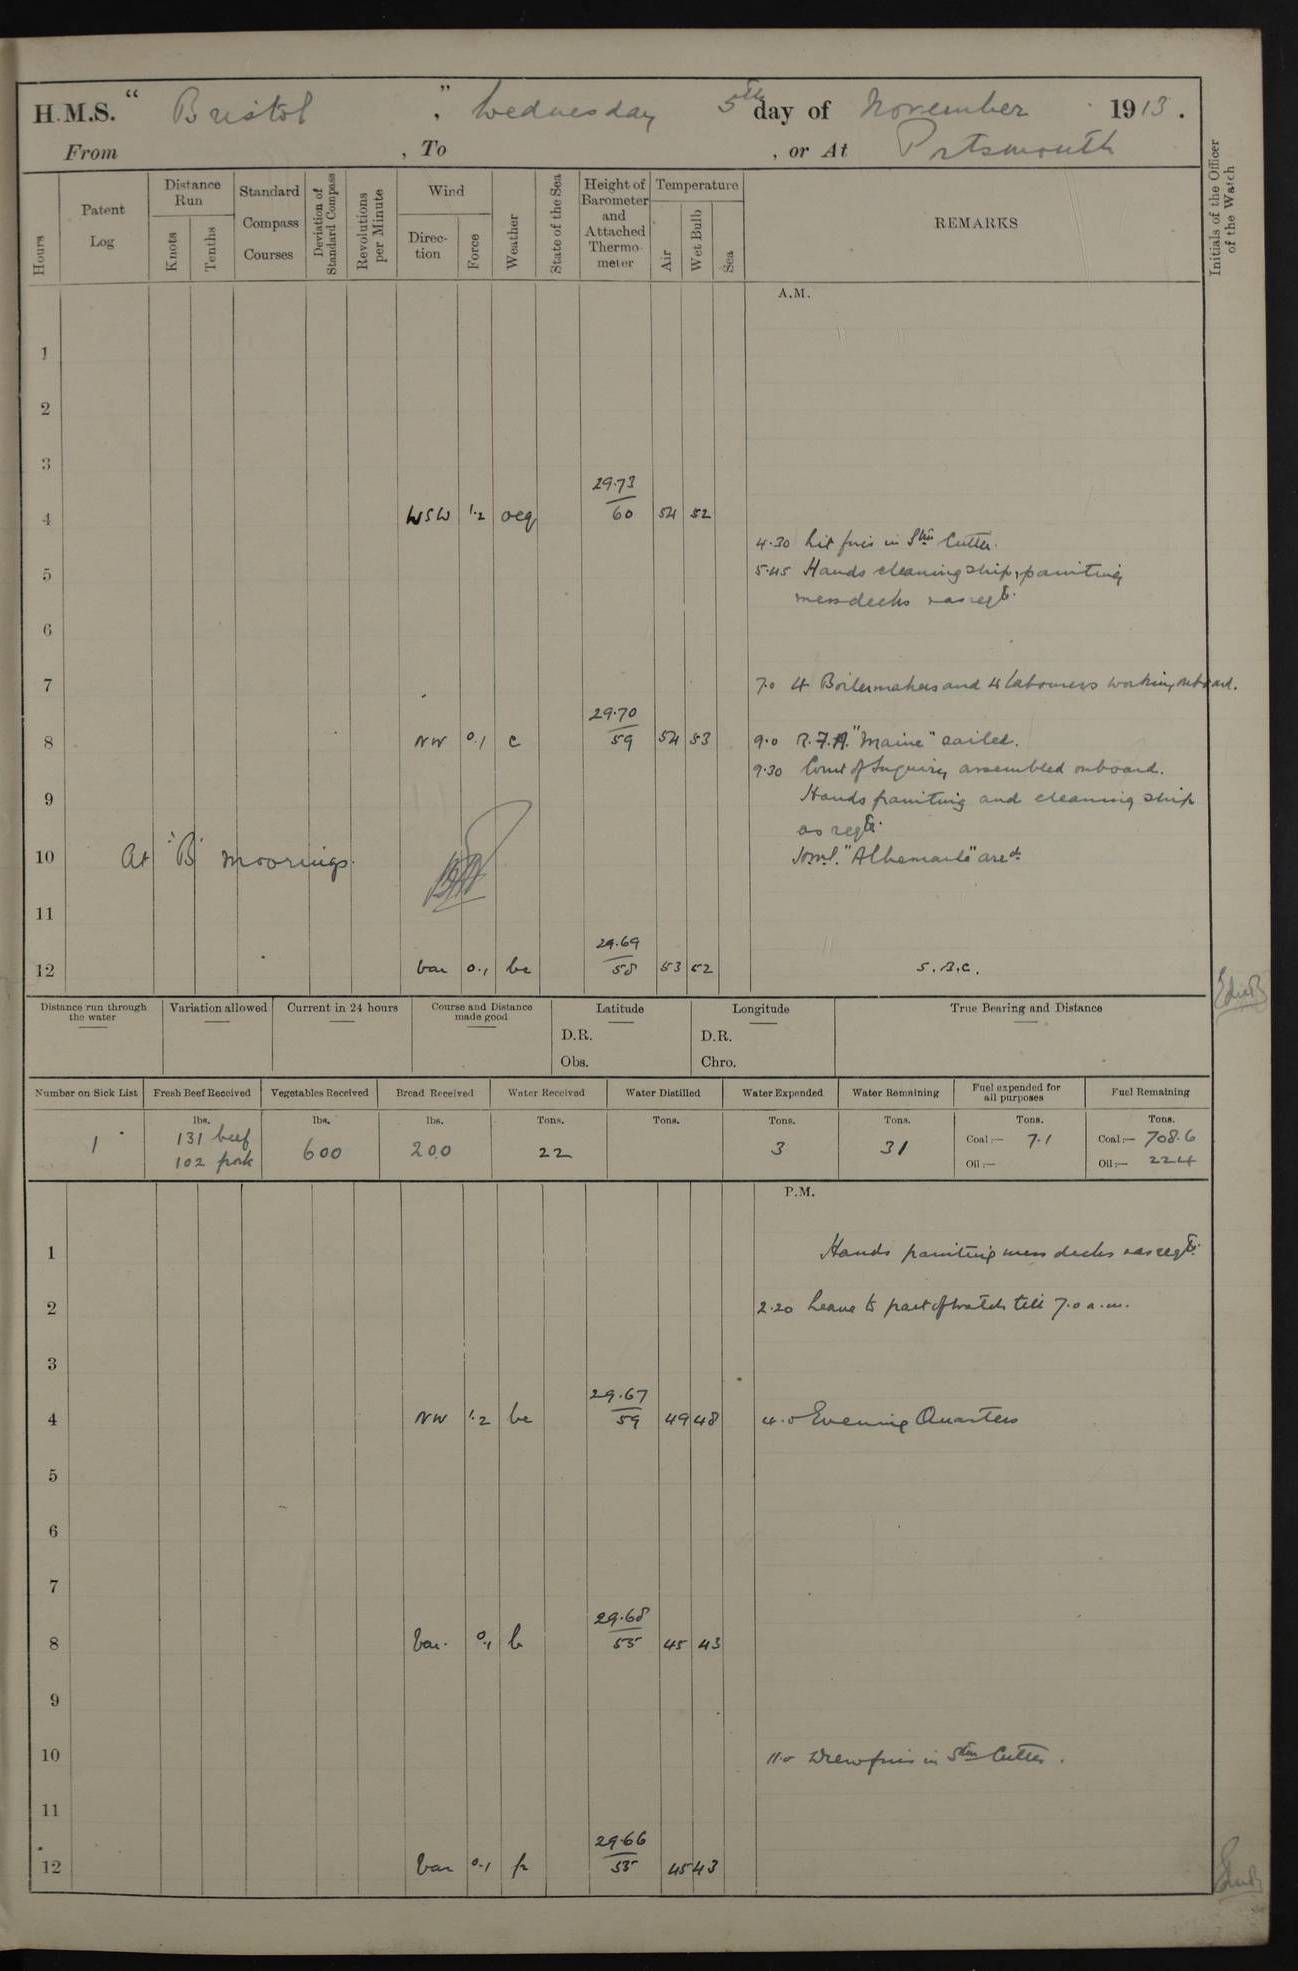 H.M.S. “ Bristol ”, Wednesday 5th day of November 1913.
From , To , or At Portsmouth
Hours
Patent Log
Distance Run
Knots
Tenths
Standard Compass Courses
Deviation of Standard Compass
Revolutions per Minute
Wind
Direction
Force
Weather
State of the Sea
Height of Barometer and Attached Thermometer
Temperature
Air
Wet Bulb
Sea
REMARKS
Initials of the Officer of the Watch
A.M.
1
2
3
29.73
4 WSW 1.2 ocq 60 54 52
4.30 Lit fires in Stm Cutter.
5
5.45 Hands cleaning ship, painting
messdecks & as reqd.
6
7
7.0 4 Boilermakers and 4 labourers working onboard.
29.70
8 NW 0.1 c 59 54 53
9.0 R.F.A. "Maine" sailed.
9.30 Court of Inquiry assembled onboard.
9
Hands painting and cleaning ship
as reqd.
10 At "B" moorings.
H.M.S. "Albemarle" arrd.
11
29.69
12 var 0.1 bc 58 53 52
S.B.C.
Distance run through the water
Variation allowed
Current in 24 hours
Course and Distance made good
Latitude
D.R.
Obs.
Longitude
D.R.
Chro.
True Bearing and Distance
Number on Sick List
Fresh Beef Received
Vegetables Received
Bread Received
Water Received
Water Distilled
Water Expended
Water Remaining
Fuel expended for all purposes
Fuel Remaining
lbs. lbs. lbs. Tons. Tons. Tons. Tons. Tons. Tons.
1 131 beef 600 200 22 3 31 Coal:— 7.1 Coal:— 708.6
102 pork Oil:— Oil:— 224
P.M.
1 Hands painting mess decks & as reqd.
2 2.20 Leave to part of watch till 7.0 a.m.
3
29.67
4 NW 1.2 bc 59 49 48 4.0 Evening Quarters
5
6
7
29.68
8 Var. 0.1 b 55 45 43
9
10 11.0 Drew fires in Stm Cutter.
11
29.66
12 Var 0.1 55 45 43